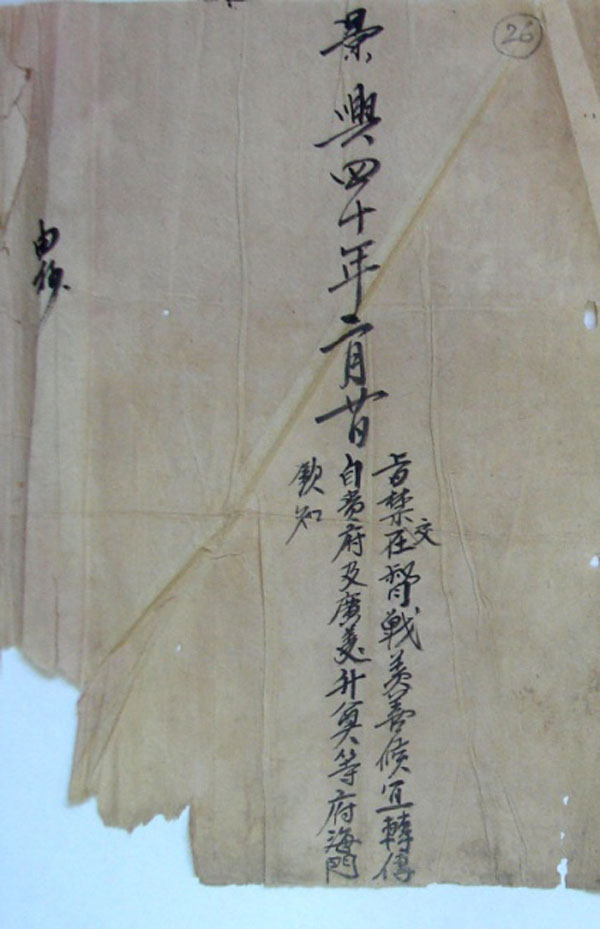 26
景興四十年二月廿日
旨禁在交督戰美善候宜轉傳
自貴府及廣義升奠等府海門
欽知